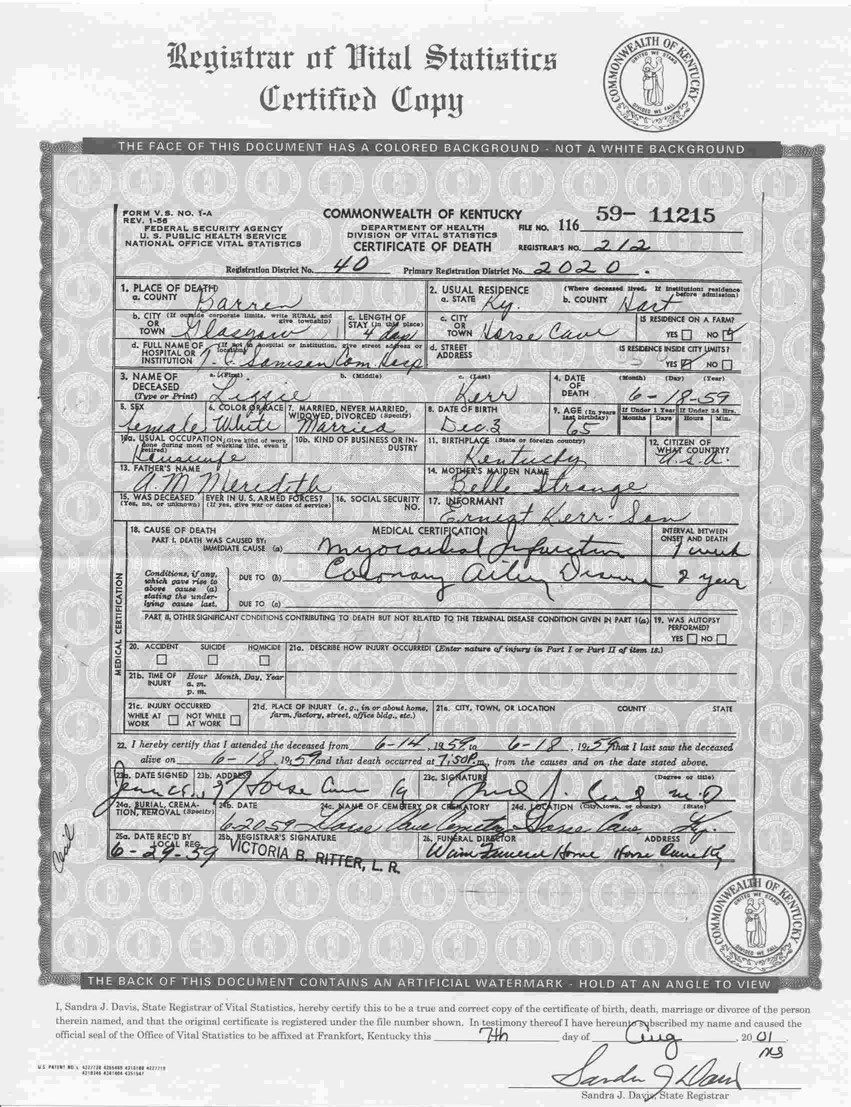 Registrar of Vital Statistics
Certified Copy
COMMONWEALTH OF KENTUCKY
UNITED WE STAND
DIVIDED WE FALL
THE FACE OF THIS DOCUMENT HAS A COLORED BACKGROUND - NOT A WHITE BACKGROUND
FORM V.S. NO. 1-A
REV. 1-56
FEDERAL SECURITY AGENCY
U. S. PUBLIC HEALTH SERVICE
NATIONAL OFFICE VITAL STATISTICS
COMMONWEALTH OF KENTUCKY
DEPARTMENT OF HEALTH
DIVISION OF VITAL STATISTICS
CERTIFICATE OF DEATH
FILE NO. 116 59- 11215
REGISTRAR'S NO. 212
Registration District No. 40 Primary Registration District No. 2020
1. PLACE OF DEATH
a. COUNTY Barren
2. USUAL RESIDENCE (Where deceased lived. If institution: residence before admission)
a. STATE Ky. b. COUNTY Hart
b. CITY (If outside corporate limits, write RURAL and give township) OR TOWN Glasgow
c. LENGTH OF STAY (in this place) 4 days
c. CITY OR TOWN Horse Cave
IS RESIDENCE ON A FARM? YES NO
d. FULL NAME OF (If not in hospital or institution, give street address or location) HOSPITAL OR INSTITUTION T. J. Samson Com. Hosp
d. STREET ADDRESS
IS RESIDENCE INSIDE CITY LIMITS? YES NO
3. NAME OF DECEASED (Type or Print) a. (First) Lizzie b. (Middle) c. (Last) Kerr
4. DATE OF DEATH (Month) (Day) (Year) 6-18-59
5. SEX female
6. COLOR OR RACE White
7. MARRIED, NEVER MARRIED, WIDOWED, DIVORCED (Specify) Married
8. DATE OF BIRTH Dec. 3
9. AGE (In years last birthday) 65 If Under 1 Year Months Days If Under 24 Hrs. Hours Min.
10a. USUAL OCCUPATION (Give kind of work done during most of working life, even if retired) Housewife
10b. KIND OF BUSINESS OR INDUSTRY
11. BIRTHPLACE (State or foreign country) Kentucky
12. CITIZEN OF WHAT COUNTRY? U.S.A.
13. FATHER'S NAME A.M. Meredith
14. MOTHER'S MAIDEN NAME Belle Strange
15. WAS DECEASED EVER IN U. S. ARMED FORCES? (Yes, no, or unknown) (If yes, give war or dates of service)
16. SOCIAL SECURITY NO.
17. INFORMANT Ernest Kerr - Son
18. CAUSE OF DEATH MEDICAL CERTIFICATION INTERVAL BETWEEN ONSET AND DEATH
PART I. DEATH WAS CAUSED BY:
IMMEDIATE CAUSE (a) Myocardial Infarction 1 week
Conditions, if any, which gave rise to above cause (a) stating the underlying cause last.
DUE TO (b) Coronary Artery Disease 2 year
DUE TO (c)
PART II. OTHER SIGNIFICANT CONDITIONS CONTRIBUTING TO DEATH BUT NOT RELATED TO THE TERMINAL DISEASE CONDITION GIVEN IN PART I(a)
19. WAS AUTOPSY PERFORMED? YES NO
MEDICAL CERTIFICATION
20. ACCIDENT SUICIDE HOMICIDE
21a. DESCRIBE HOW INJURY OCCURRED: (Enter nature of injury in Part I or Part II of item 18.)
21b. TIME OF INJURY Hour Month, Day, Year
a. m.
p. m.
21c. INJURY OCCURRED WHILE AT WORK NOT WHILE AT WORK
21d. PLACE OF INJURY (e. g., in or about home, farm, factory, street, office bldg., etc.)
21e. CITY, TOWN, OR LOCATION COUNTY STATE
22. I hereby certify that I attended the deceased from 6-14, 1959, to 6-18, 1959 that I last saw the deceased
alive on 6-18, 1959 and that death occurred at 7:50 P m., from the causes and on the date stated above.
23a. DATE SIGNED
23b. ADDRESS Horse Cave Ky
23c. SIGNATURE (Degree or title) M.D
24a. BURIAL, CREMATION, REMOVAL (Specify)
24b. DATE 6-20-59
24c. NAME OF CEMETERY OR CREMATORY Horse Cave Cemetery
24d. LOCATION (City, town, or county) (State) Horse Cave, Ky.
25a. DATE REC'D BY LOCAL REG. 6-29-59
25b. REGISTRAR'S SIGNATURE VICTORIA B. RITTER, L. R.
26. FUNERAL DIRECTOR ADDRESS Funeral Home Horse Cave Ky
COMMONWEALTH OF KENTUCKY
UNITED WE STAND
DIVIDED WE FALL
THE BACK OF THIS DOCUMENT CONTAINS AN ARTIFICIAL WATERMARK - HOLD AT AN ANGLE TO VIEW
I, Sandra J. Davis, State Registrar of Vital Statistics, hereby certify this to be a true and correct copy of the certificate of birth, death, marriage or divorce of the person
therein named, and that the original certificate is registered under the file number shown. In testimony thereof I have hereunto subscribed my name and caused the
official seal of the Office of Vital Statistics to be affixed at Frankfort, Kentucky this 7th day of Aug, 2001.
Sandra J Davis
Sandra J. Davis, State Registrar